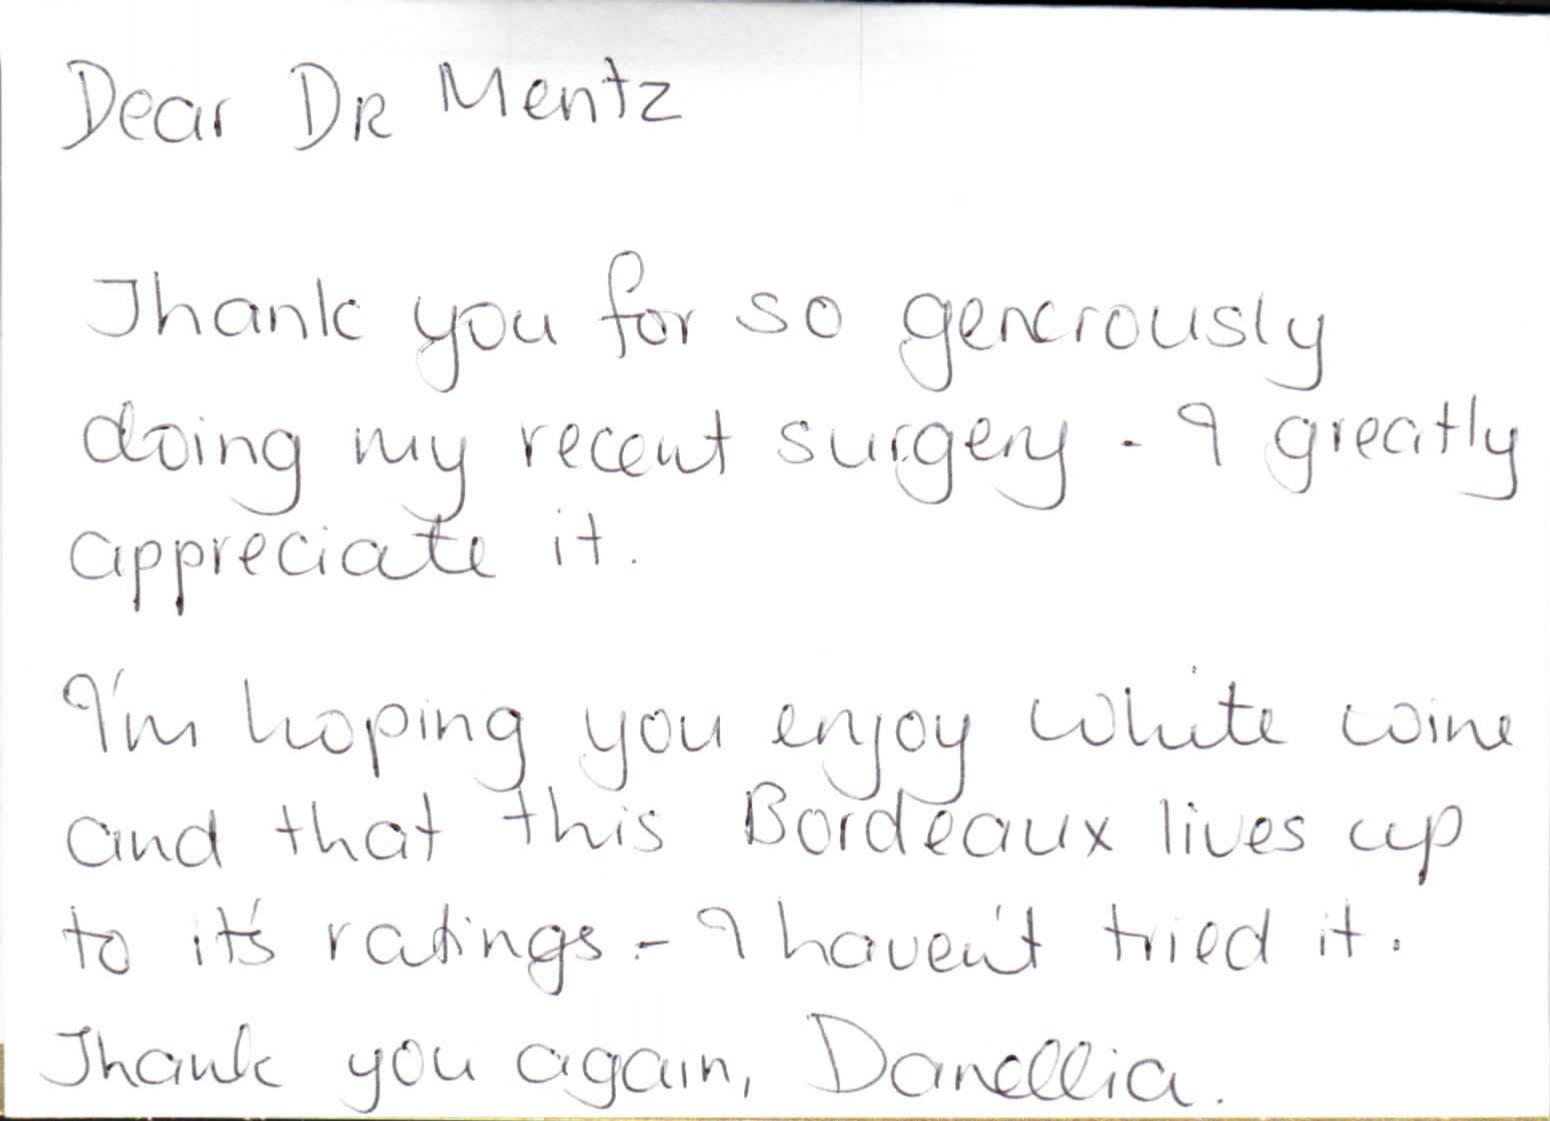 Dear DR Mentz
Thank you for so generously
doing my recent surgery - I greatly
appreciate it.
I'm hoping you enjoy white wine
and that this Bordeaux lives up
to it's ratings - I haven't tried it.
Thank you again, Danellia.